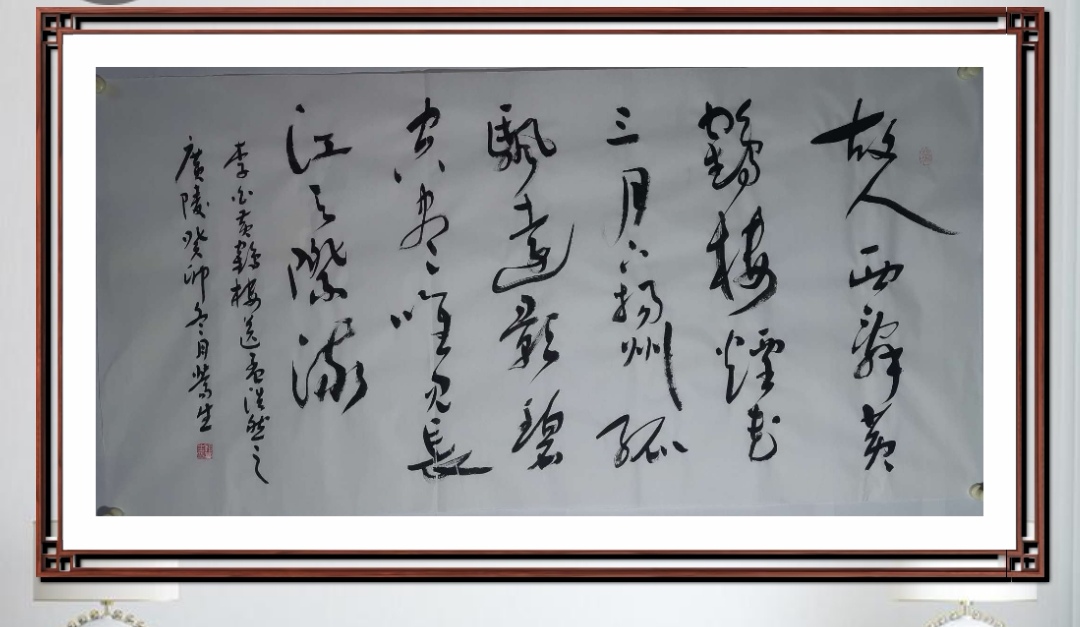 故人西辭黃
鶴樓煙花
三月下揚州孤
颿遠影碧
空盡唯見長
江天際流
李白黃鶴樓送孟浩然之
廣陵癸卯冬月生